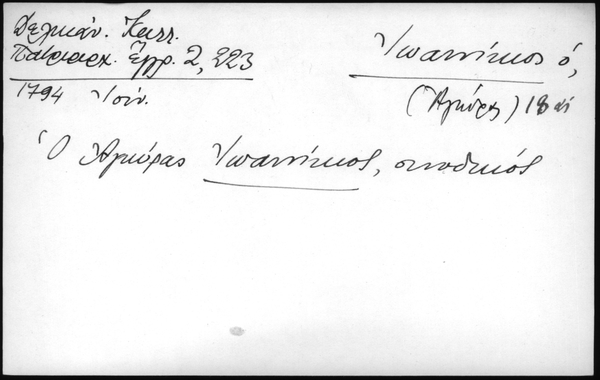 Δελικάν. Καλλ.
Πατριαρχ. Ἔγγρ. 2, 223
1794 Ἰούν.
Ἰωαννίκιος ὁ,
(Ἀγκύρας) 18 αἰ
Ὁ Ἀγκύρας Ἰωαννίκιος, συνοδικός